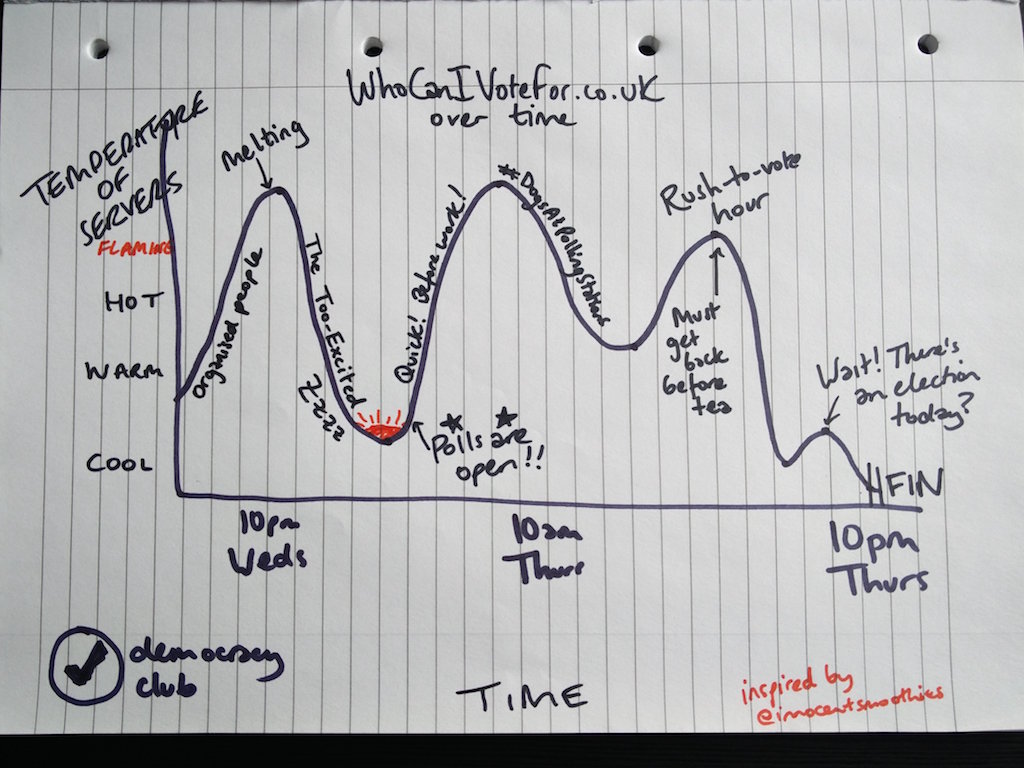 WhoCanIVoteFor.co.uk
over time
TEMPERATURE
OF
SERVERS
FLAMING
HOT
WARM
COOL
melting
organised people
The Too-Excited
Zzzzz
Quick! Before work!
Polls are
open!!
#DogsAtPollingStations
Rush-to-vote
hour
Must
get
back
before
tea
Wait! There's
an election
today?
FIN
10pm
Weds
10am
Thurs
10pm
Thurs
democracy
club
TIME
inspired by
@innocentsmoothies